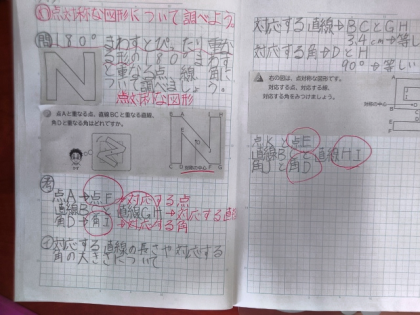 点対称な図形について調べよう。
問 180°まわすとぴったり重なる形の180°まわすと重なる点、線、角について調べましょう。
点対称な図形
N
点Aと重なる点、直線BCと重なる直線、
角Dと重なる角はどれですか。
N
点A→点E→対応する点
直線BC→直線GH→対応する直
角D→角I→対応する角
対応する直線の長さや対応する
角の大きさについて
対応する直線→BCとGH
3.4cm→等しい
対応する角→DとH
90°→等しい
右の図は、点対称な図形です。
対応する点、対応する線、
対応する角をみつけましょう。
点Kと点E
直線BCと直線HI
角Jと角D